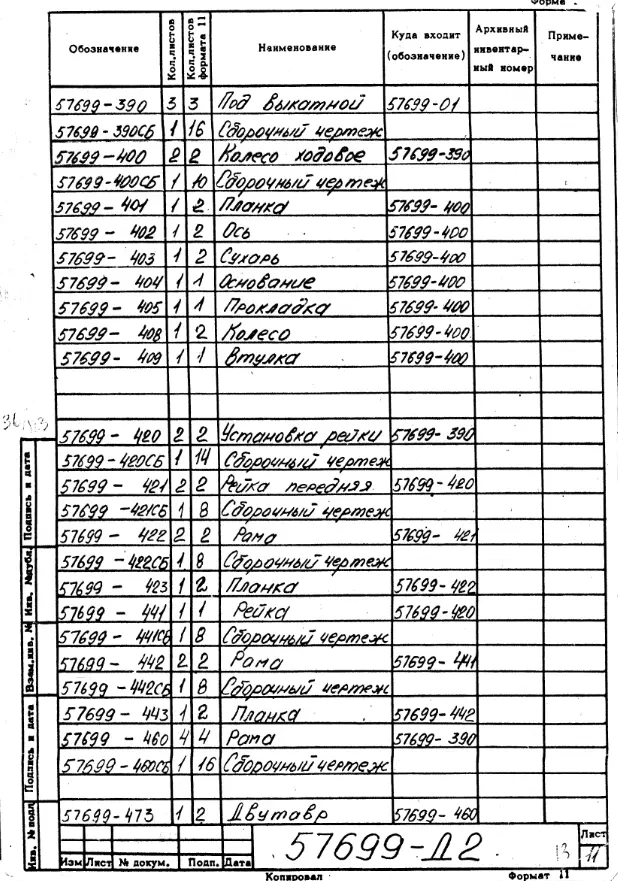 Форма
Обозначение Кол.листов Кол.листов формата 11 Наименование Куда входит (обозначение) Архивный инвентарный номер Примечание
57699-390 3 3 Под выкатной 57699-01
57699-390СБ 1 16 Сборочный чертеж
57699-400 2 2 Колесо ходовое 57699-390
57699-400СБ 1 10 Сборочный чертеж
57699-401 1 2 Планка 57699-400
57699-402 1 2 Ось 57699-400
57699-403 1 2 Сухарь 57699-400
57699-404 1 1 Основание 57699-400
57699-405 1 1 Прокладка 57699-400
57699-408 1 2 Колесо 57699-400
57699-409 1 1 Втулка 57699-400
57699-420 2 2 Установка рейки 57699-390
57699-420СБ 1 14 Сборочный чертеж
57699-421 2 2 Рейка передняя 57699-420
57699-421СБ 1 8 Сборочный чертеж
57699-422 2 2 Рама 57699-421
57699-422СБ 1 8 Сборочный чертеж
57699-423 1 2 Планка 57699-422
57699-441 1 1 Рейка 57699-420
57699-441СБ 1 8 Сборочный чертеж
57699-442 2 2 Рама 57699-441
57699-442СБ 1 8 Сборочный чертеж
57699-443 1 2 Планка 57699-442
57699-460 4 4 Рама 57699-390
57699-460СБ 1 16 Сборочный чертеж
57699-473 1 2 Двутавр 57699-460
Подпись и дата
Инв. №дубл
Взам.инв. №
Подпись и дата
Инв. №подл
Изм Лист № докум. Подп. Дата
57699-Д2
13
Лист
11
Копировал Формат 11